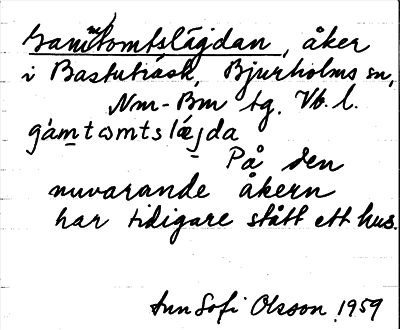 Gammtomtslägdan, åker
i Bastuträsk, Bjurholms sn,
Nm-Bm tg. Vb. l.
gámtomtslǽjda
På den
nuvarande åkern
har tidigare stått ett hus.
Ann Sofi Olsson 1959